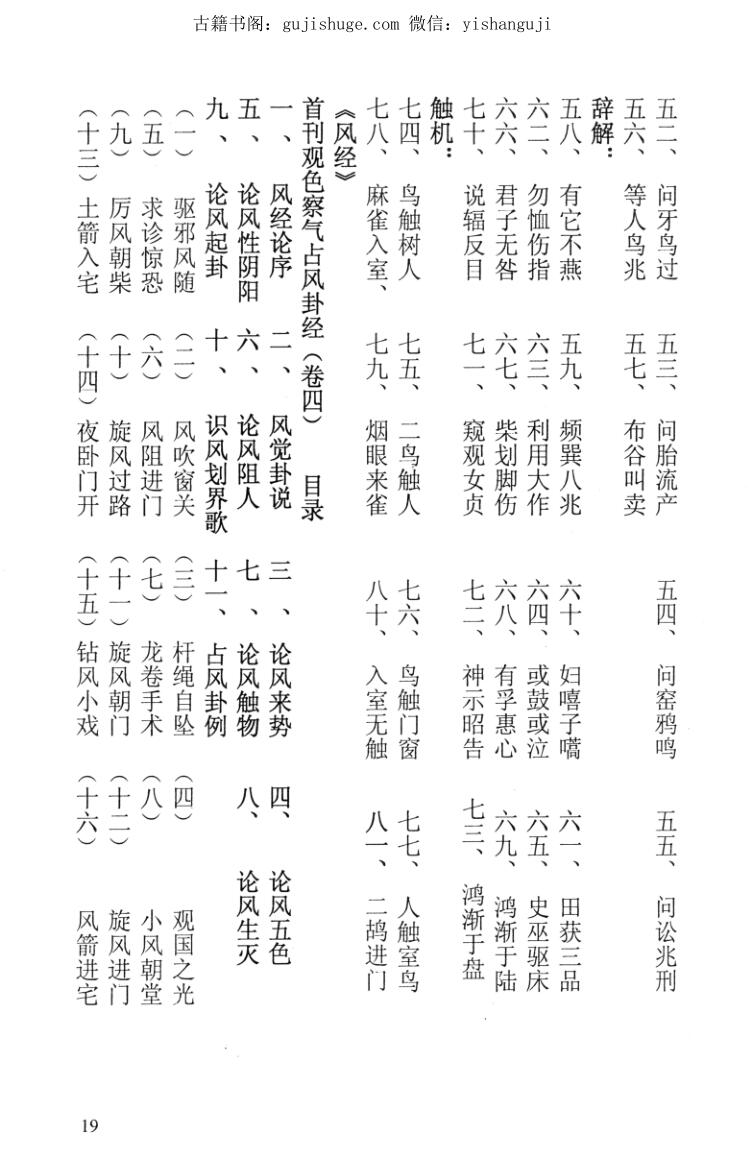 古籍书阁：gujishuge.com 微信：yishanguji
五二、问牙鸟过 五三、问胎流产 五四、问窑鸦鸣 五五、问讼兆刑
五六、等人鸟兆 五七、布谷叫卖
辞解：
五八、有它不燕 五九、频巽八兆 六十、妇嘻子嚆 六一、田获三品
六二、勿恤伤指 六三、利用大作 六四、或鼓或泣 六五、史巫驱床
六六、君子无咎 六七、柴划脚伤 六八、有孚惠心 六九、鸿渐于陆
七十、说辐反目 七一、窥观女贞 七二、神示昭告 七三、鸿渐于盘
触机：
七四、鸟触树人 七五、二鸟触人 七六、鸟触门窗 七七、人触室鸟
七八、麻雀入室、 七九、烟眼来雀 八十、入室无触 八一、二鸪进门
《风经》
首刊观色察气占风卦经（卷四） 目录
一、风经论序 二、风觉卦说 三、论风来势 四、论风五色
五、论风性阴阳 六、论风阻人 七、论风触物 八、论风生灭
九、论风起卦 十、识风划界歌 十一、占风卦例
（一）驱邪风随 （二）风吹窗关 （三）杆绳自坠 （四）观国之光
（五）求诊惊恐 （六）风阻进门 （七）龙卷手术 （八）小风朝堂
（九）厉风朝柴 （十）旋风过路 （十一）旋风朝门 （十二）旋风进门
（十三）土箭入宅 （十四）夜卧门开 （十五）钻风小戏 （十六）风箭进宅
19